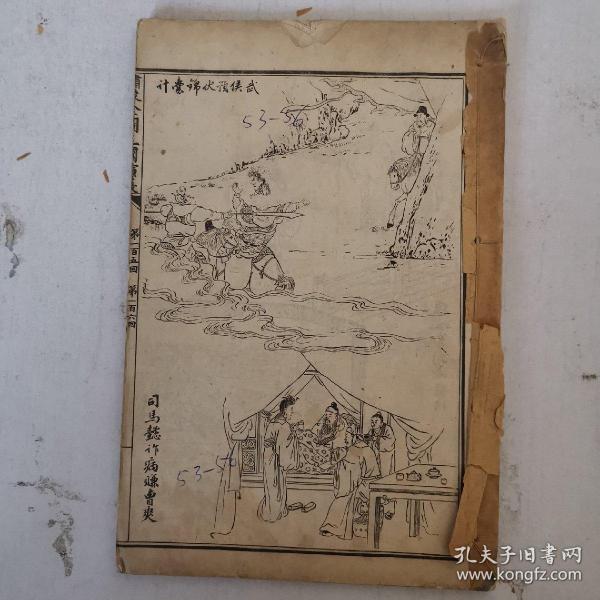 武侯預伏錦囊計
53-56
第一百五回 第一百六回
司馬懿詐病賺曹爽
53-56
孔夫子旧书网
www.kongfz.com